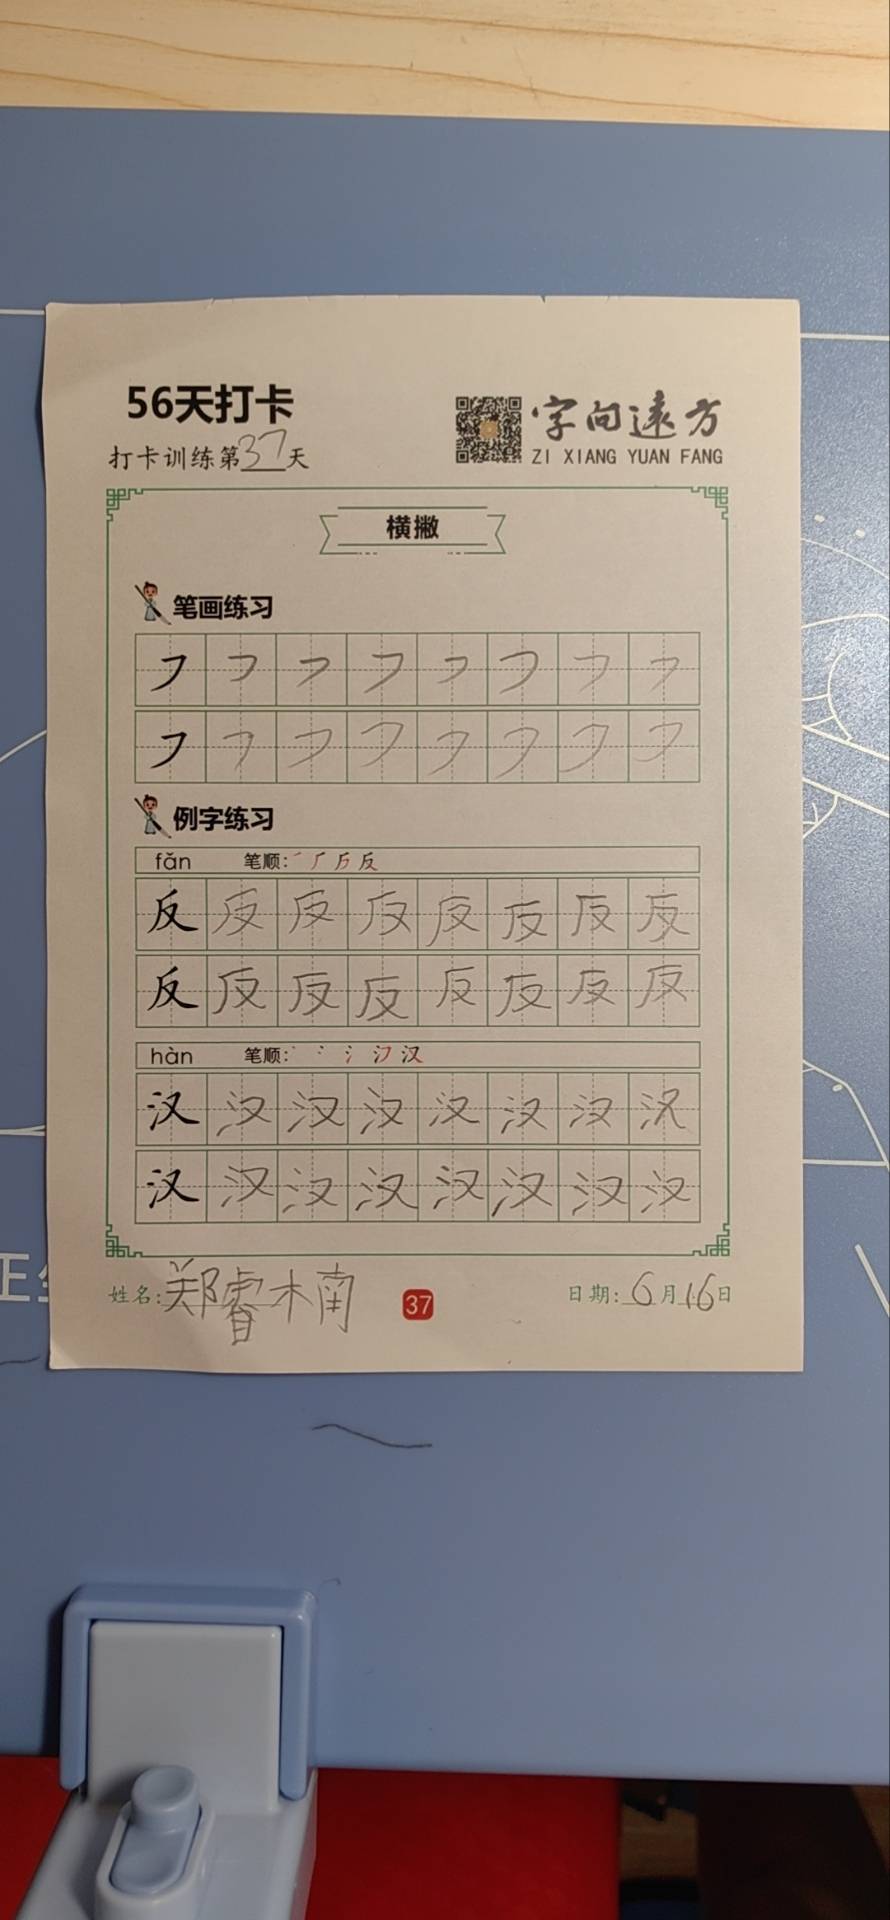 56天打卡
打卡训练第37天
字向远方
ZI XIANG YUAN FANG
横撇
笔画练习
㇇ ㇇ ㇇ ㇇ ㇇ ㇇ ㇇ ㇇
㇇ ㇇ ㇇ ㇇ ㇇ ㇇ ㇇ ㇇
例字练习
fǎn 笔顺: 反
反 反 反 反 反 反 反 反
反 反 反 反 反 反 反 反
hàn 笔顺: 汉
汉 汉 汉 汉 汉 汉 汉 汉
汉 汉 汉 汉 汉 汉 汉 汉
姓名: 郑睿楠 37 日期: 6月16日
正